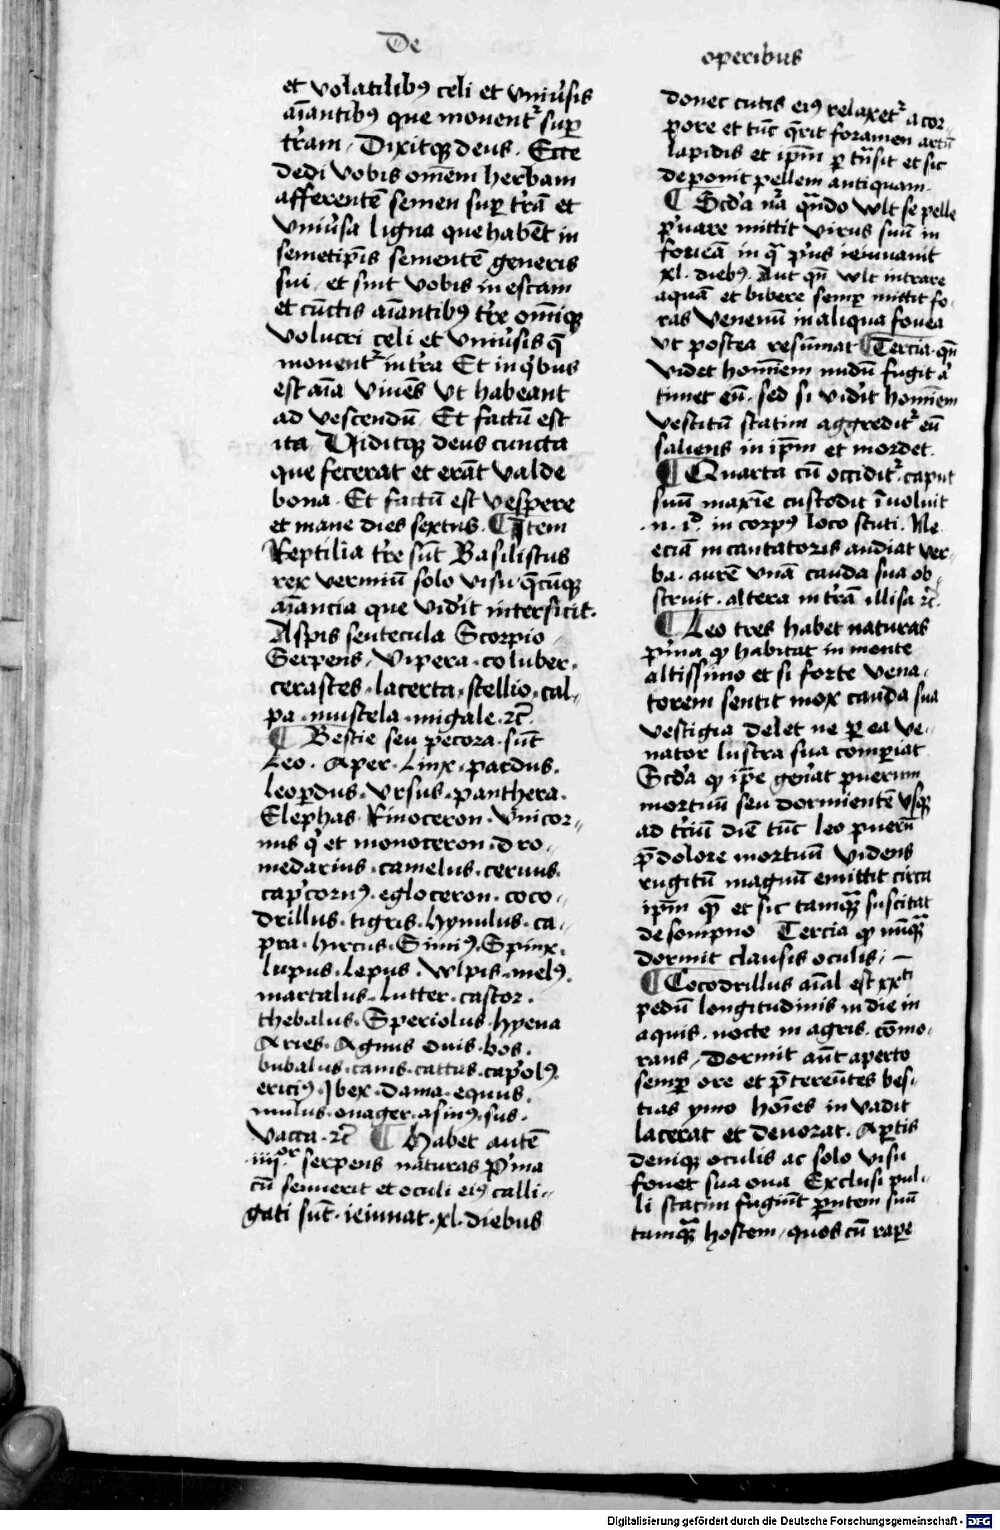 De
operibus
et volatilibꝰ celi et vniũsis
aĩantibꝰ que mouentᷣ suꝑ
t̃ram / Dixitqꝫ deus . Ecce
dedi vobis om̃em herbam
afferentẽ semen suꝑ t̃rã et
vniũsa ligna que habẽt in
semetip̃is sementẽ generis
sui / et sint vobis in escam
et cũctis aĩantibꝰ t̃re om̃iqꝫ
volucri celi et vniũsis q̃
mouentᷣ in t̃ra Et in qͥbus
est aĩa viuẽs vt habeant
ad vescendũ / Et factũ est
ita Viditqꝫ deus cuncta
que fecerat et erãt valde
bona . Et factũ est vespere
et mane dies sextus . ¶ Item
Reptilia t̃re sũt Basiliscus
rex vermiũ solo visu q̃cũqꝫ
aĩancia que vid̾it interficit .
Aspis sentecula Scorpio /
Serpens / vipera . coluber .
cerastes . lacerta . stellio . cal⸗
pa . mustela . migale . ⁊c̃ .
¶ Bestie seu pecora . sũt
Leo . Aper . Linx . pardus .
leoꝑdus . vrsus . panthera .
Elephas . Rinoceron . vnicor⸗
nus qͥ et monoceron . dro⸗
medarius . camelus . ceruus .
capͥcornꝰ . egloceron . coco⸗
drillus . tigris . hynulus . ca⸗
pra . hircus . Simiꝰ . Spinx .
lupus . lepus . wlpis . melꝰ .
martalus . Lutter . castor .
thebalus . Speriolus . hyena
Aries . Agnus ouis . bos .
bubalus . canis . cattus . capͥolꝰ .
ericiꝰ . Ibex . dama . equus .
mulus . onager . asinꝰ . sus .
vacca . ⁊c̃ ¶ Habet autẽ
.iiijᵒʳ. serpens naturas pͥma
cũ senuerit et oculi eiꝰ calli⸗
gati sũt . ieiunat . xl . diebus
donec cutis eiꝰ relaxetᷣ a cor⸗
pore et tũc q̃rit foramen artũ
lapidis et ip̃m ꝑ tñsit et sic
deponit pellem antiquam .
¶ Scd̾a nᷓa qũdo wlt se pelle
pͥuare mittit virus suũ in
foueã in qᷓ pͥus ieiunauit
xl . diebꝰ . Aut qñ wlt intrare
aquã et bibere semꝑ mittit fo⸗
ras venenũ in aliqua fouea
vt postea resũmat ¶ Tercia . qñ
videt hom̃iem nudũ fugit a᷒
timet eũ . sed si vid̾it hom̃iem
vestitũ statim aggreditᷣ eũ
saliens in ip̃m et mordet .
¶ Quarta cũ occiditᷣ . caput
suũ maxĩe custodit ĩuoluit
. n . iᵒ. in corpꝰ loco scuti . Ne
eciã incantatoris audiat ver⸗
ba . aurẽ vnã cauda sua ob⸗
struit . altera in t̃rã illisa ⁊c̃ .
¶ Leo tres habet naturas
pͥma ꝙ habitat in monte
altissimo et si forte vena⸗
torem sentit mox cauda sua
vestigia delet ne ꝑ ea ve⸗
nator lustra sua comꝑiat
Scd̾a ꝙ ip̃e gen̾at puerum
mortuũ seu dormientẽ vsqꝫ
ad t̾ciũ diẽ tũc leo puerũ
p̃ dolore mortuũ videns
rugitũ magnũ emittit circa
ip̃m et sic tamqᷓꝫ suscitat
de sompno Tercia ꝙ nũqᷓꝫ
dormit clausis oculis / —
¶ Cocodrillus aĩal est xxᵗⁱ
pedũ longitudinis in die in
aquis . nocte in agris . cõmo⸗
rans / Dormit aũt aperto
semꝑ ore et p̃tereũtes bes⸗
tias ymo hoĩes inuadit
lacerat et deuorat . Aꝑtis
deniqꝫ oculis ac solo visu
fouet sua oua Exclusi pul⸗
li statim fugiũt ꝑentem suũ
tamqᷓꝫ hostem / quos cũ raꝑe
Digitalisierung gefördert durch die Deutsche Forschungsgemeinschaft - DFG